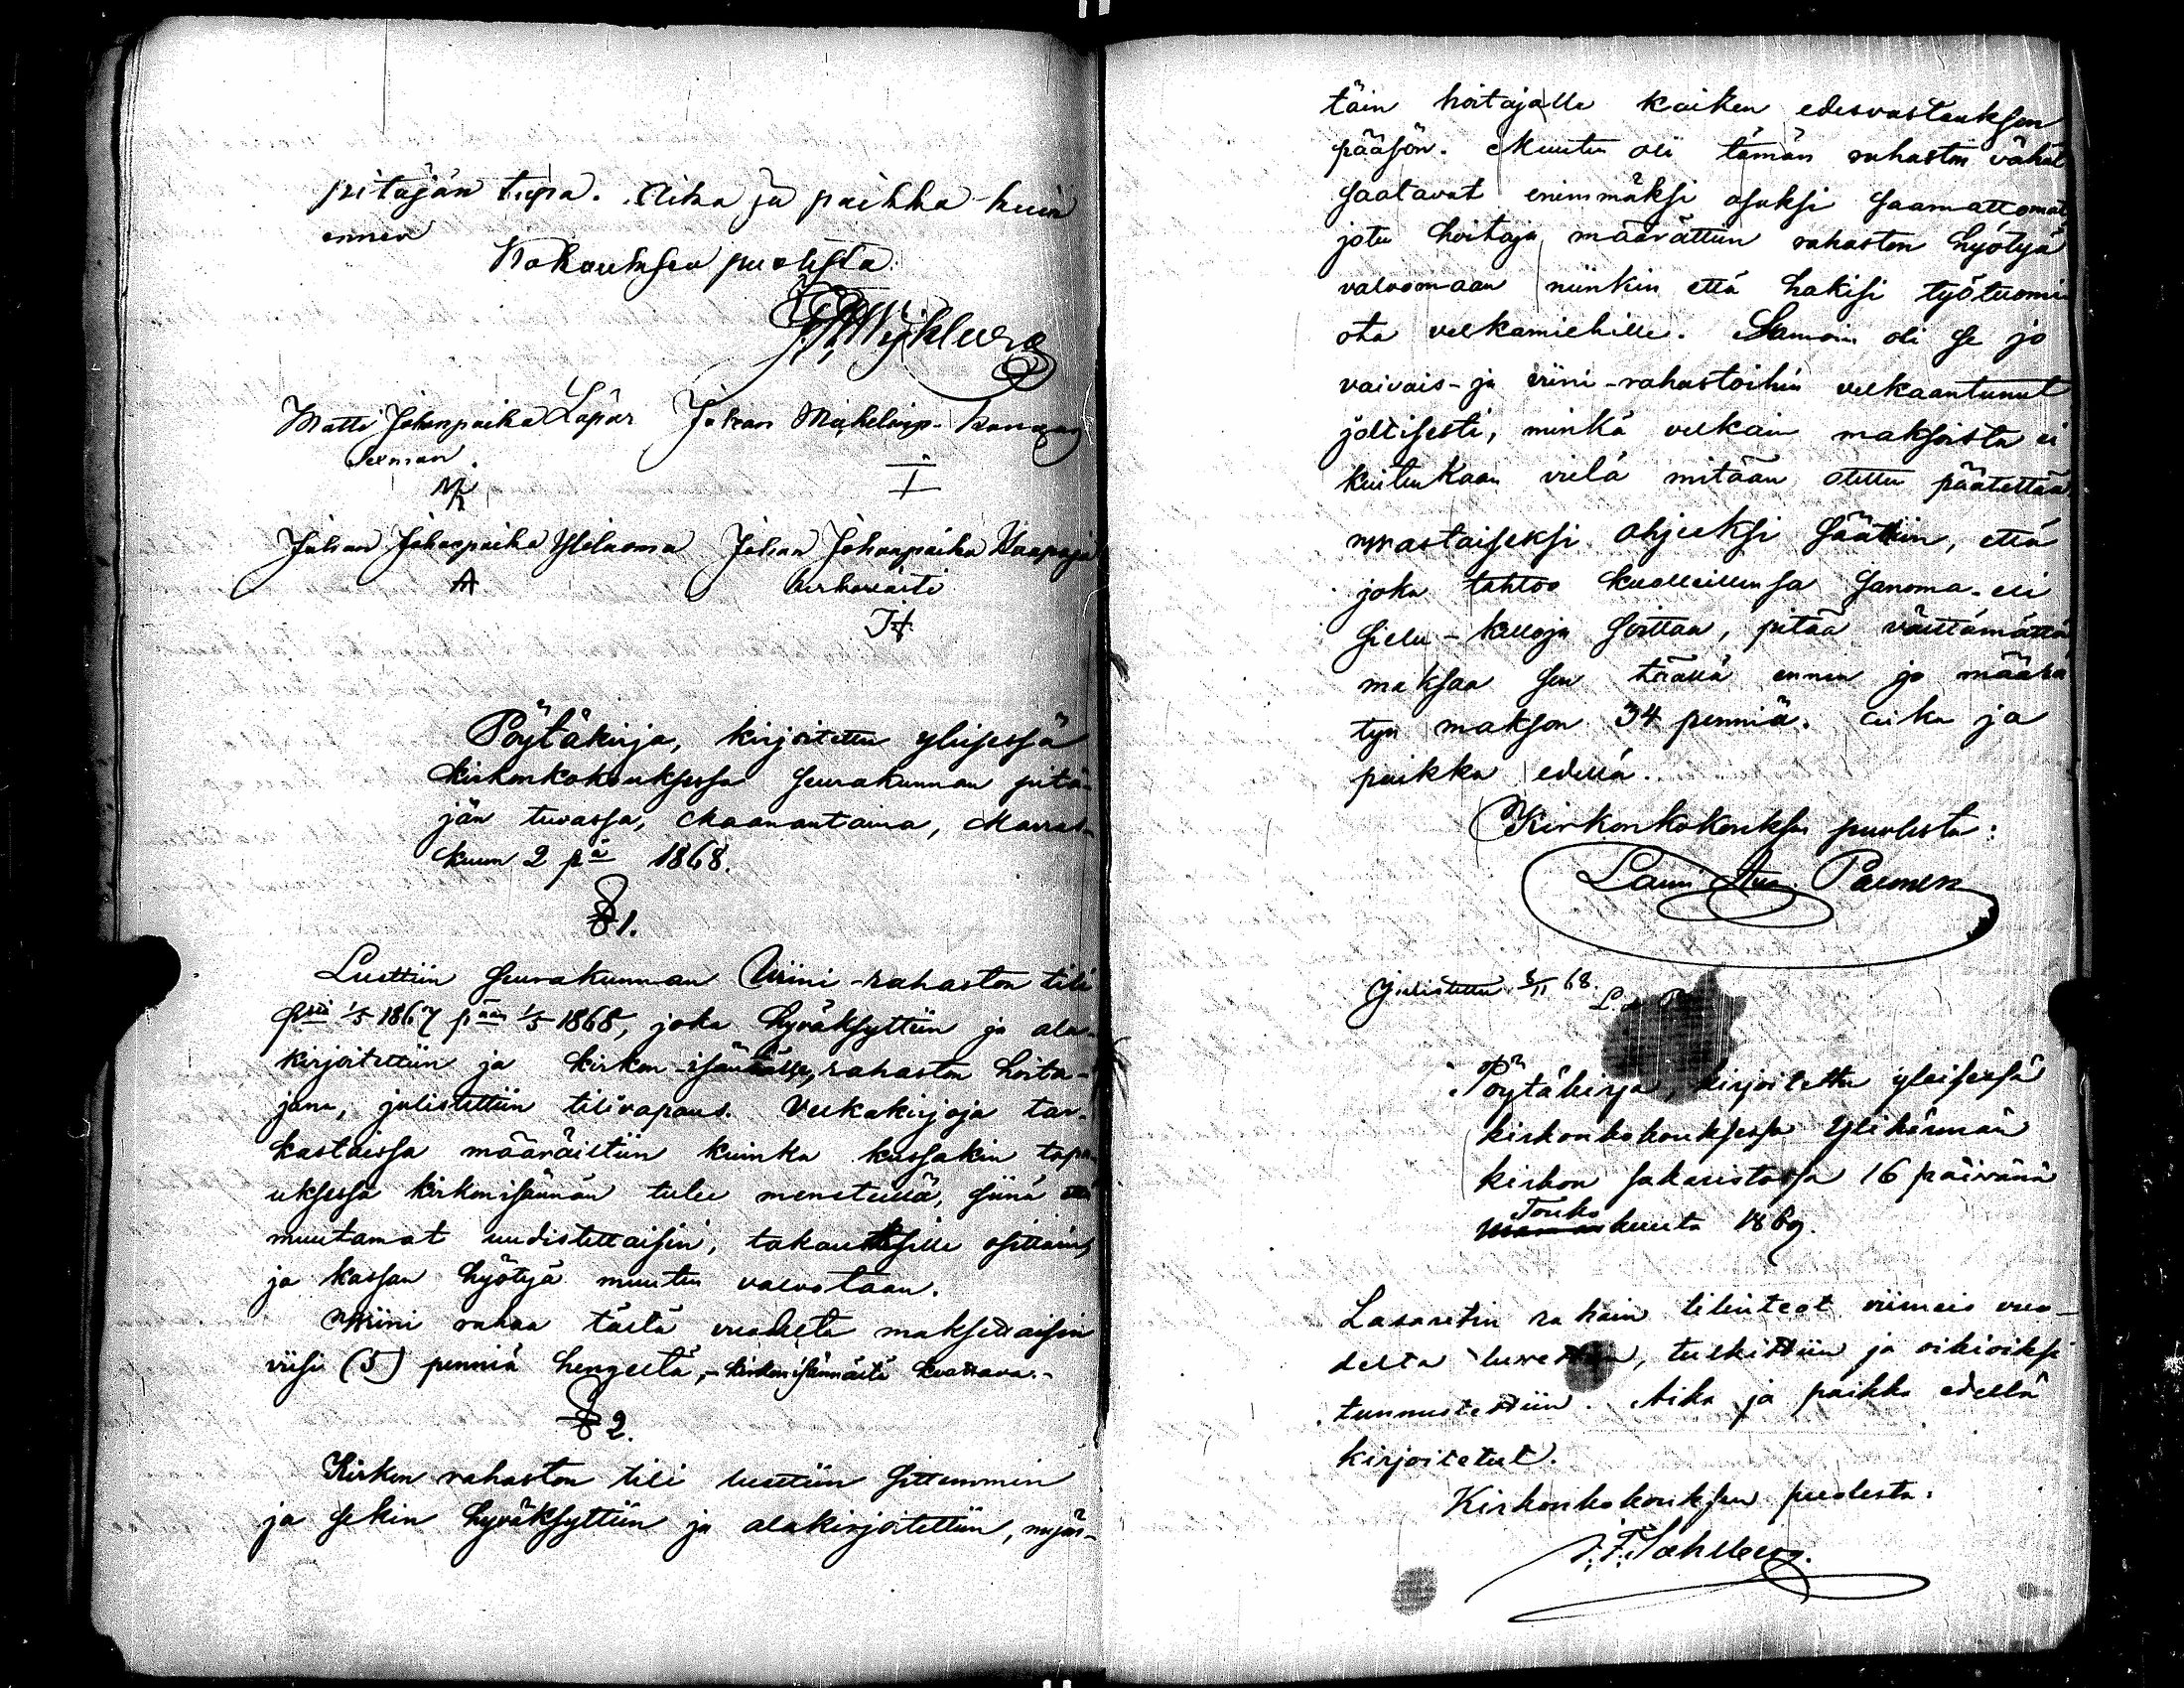 pitäjän tupa. Aika ja paikka kuin
ennen
Kokouksen puolesta:
Matti Johanpoika Lapar Johan Michelinp.
A
Johan Johanpoika Yliluoma Johan Johanpoika Knaapaja
A
JH
Pöytäkirja, kirjoitettu yleisessä
kirkonkokouksessa seurakunnan pitä-
jän tuvassa, Maanantaina, Marras-
kuun 2 pä 1868.
§ 1.
Luettiin seurakunnan Wiini-rahaston tili
1/5 1867 pään 1/5 1868, joka hyväksyttiin ja ala-
kirjoitettiin ja kirkon-isännälle, rahaston hoita-
jana, julistettiin tilivapaus. Velkakirjoja tar-
kastaissa määräistiin kuinka kussakin tapa-
uksessa kirkonisännän tulee menetellä, siinä että
muutamat uudistettaisiin, takauksille osittain,
ja kassan hyötyä muuten valvotaan.
Wiini rahaa tästä vuodesta maksettaisiin
viisi (5) penniä hengeltä, - kirkonisännältä koottava.-
§ 2.
Kirkon rahaston tili luettiin sittemmin
ja sekin hyväksyttiin ja alakirjoitettiin, myös-
täin hoitajalle kaiken edesvastauksen
pääsön. Muuten oli tämän rahaston vähät
saatavat enimmäksi osaksi saamattomat
jota hoitaja määrättiin rahaston hyötyä
valvomaan niinkin että hakisi työtuomi-
ota velkamiehille. Samoin oli se jo
vaivais- ja viini-rahastoihin velkaantunut
jollisesti, minkä velkain maksoista ei
kuitenkaan vielä mitään otettu päätettää
Wastaiseksi ohjeeksi säättiin, että
joka tahtoo kuolleillensa sanoma- eli
sielu-kelloja soittaa, pitää välttämättä
maksaa sen täällä ennen jo määrä-
tyn makson 34 penniä. Aika ja
paikka edellä.
Kirkonkokouksen puolesta:
Lauri Aug. Palmén
Julistettu 8/11 68.
L. A. P.
Pöytäkirja, kirjoitettu yleisessä
kirkonkokouksessa Ylihärmän
kirkon sakaristossa 16 päivänä
Touko
kuuta 1869.
Lasaretin rahain tilinteot viimeis vuo-
delta luettiin, tutkittiin ja oikioiksi
tunnustettiin. Aika ja paikka edellä
kirjoitetut.
Kirkonkokouksen puolesta:
J. F. Sahlberg.